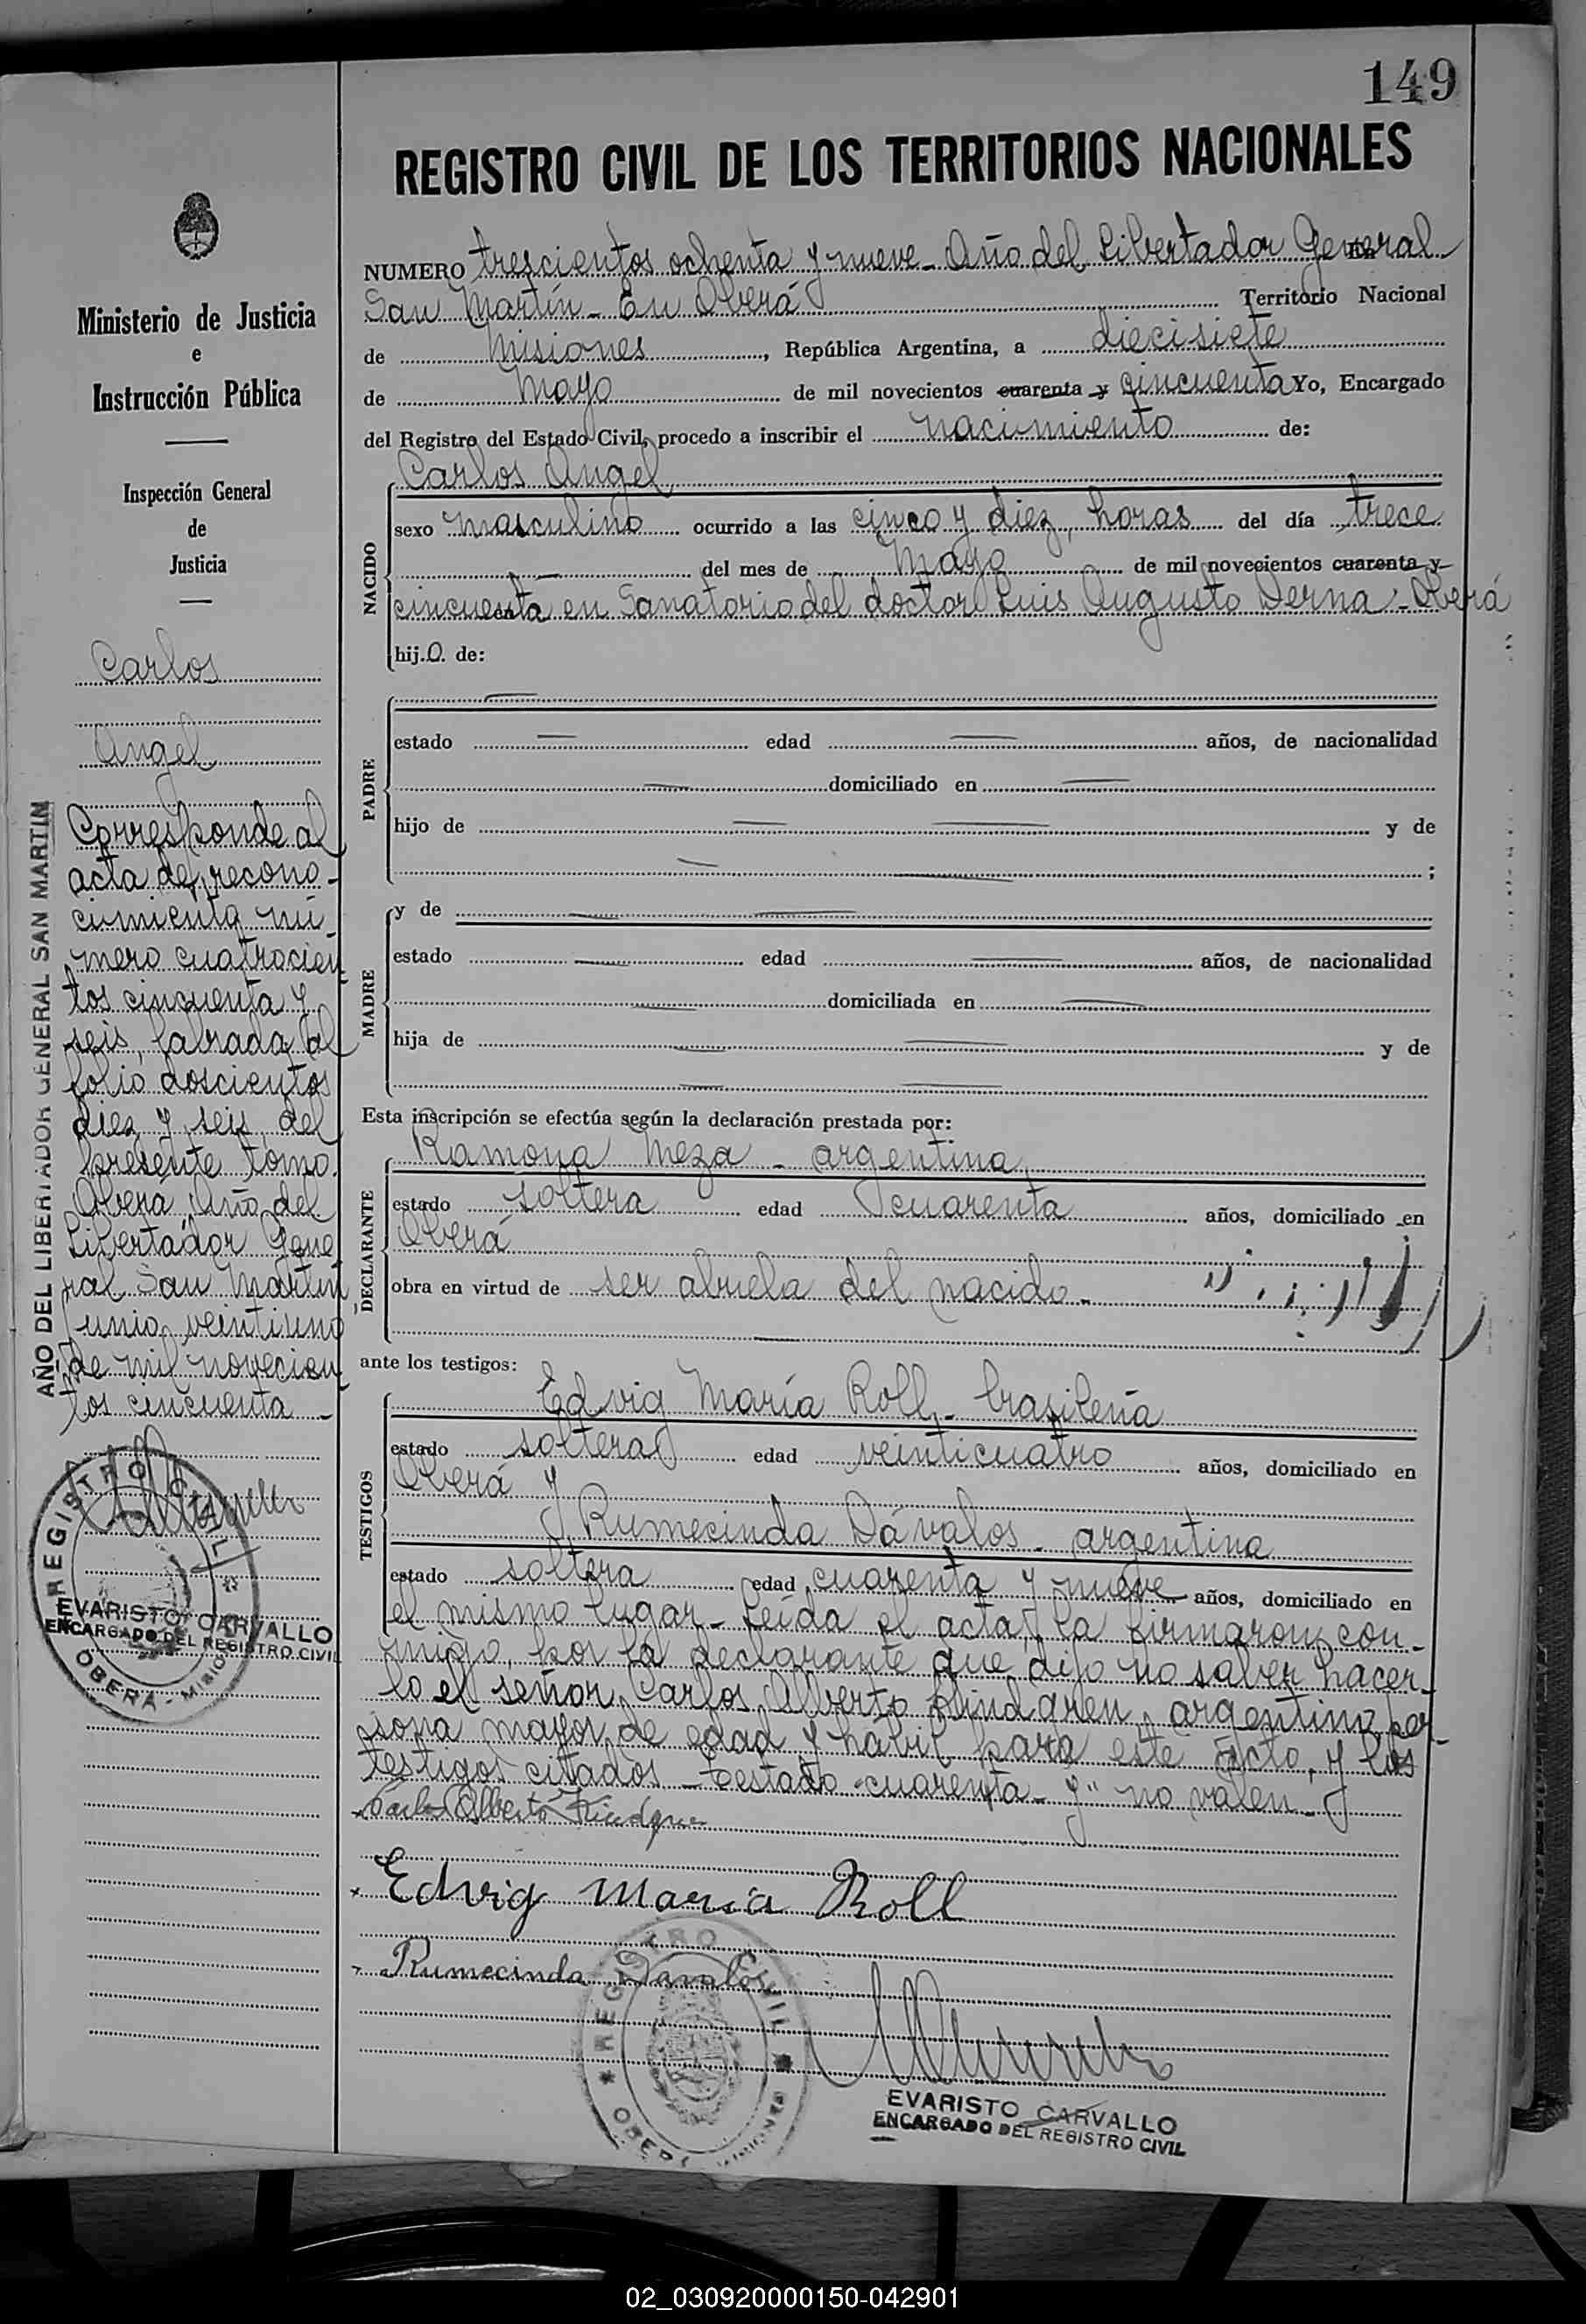 149
REGISTRO CIVIL DE LOS TERRITORIOS NACIONALES
Ministerio de Justicia
e
Instrucción Pública
Inspección General
de
Justicia
Carlos
Angel
Corresponde al
acta de recono-
cimiento nú-
mero cuatrocien-
tos cincuenta y
seis, labrada al
folio doscientos
diez y seis del
presente tomo.
Oberá, Año del
Libertador Gene
ral San Martín
junio veintiuno
de mil novecien-
tos cincuenta -
AÑO DEL LIBERTADOR GENERAL SAN MARTIN
REGISTRO CIVIL
OBERÁ - MISIONES
EVARISTO CARVALLO
ENCARGADO DEL REGISTRO CIVIL
NUMERO trescientos ochenta y nueve - Año del Libertador General
San Martín - En Oberá Territorio Nacional
de Misiones, República Argentina, a diecisiete
de Mayo de mil novecientos cuarenta y cincuenta Yo, Encargado
del Registro del Estado Civil, procedo a inscribir el nacimiento de:
NACIDO
Carlos Angel
sexo masculino ocurrido a las cinco y diez, horas del día trece
del mes de Mayo de mil novecientos cuarenta y
cincuenta en Sanatorio del doctor Luis Augusto Derna - Oberá
hijo de:
PADRE
estado edad años, de nacionalidad
domiciliado en
hijo de y de
;
MADRE
y de
estado edad años, de nacionalidad
domiciliada en
hija de y de
Esta inscripción se efectúa según la declaración prestada por:
DECLARANTE
Ramona Meza - argentina
estado soltera edad cuarenta años, domiciliado en
Oberá
obra en virtud de ser abuela del nacido -
ante los testigos:
TESTIGOS
Edvig María Roll - brasileña
estado soltera edad veinticuatro años, domiciliado en
Oberá y
Rumecinda Dávalos - argentina
estado soltera edad cuarenta y nueve años, domiciliado en
el mismo lugar - Leída el acta, la firmaron con-
migo, por la declarante que dijo no saber hacer-
lo el señor Carlos Alberto Lindgren, argentino, per-
sona mayor de edad y hábil para este acto, y los
testigos citados - Testado "cuarenta - y" no valen -
Carlos Alberto
Edvig Maria Roll
Rumecinda Davalos
REGISTRO CIVIL
OBERÁ MISIONES
EVARISTO CARVALLO
ENCARGADO DEL REGISTRO CIVIL
02_030920000150-042901